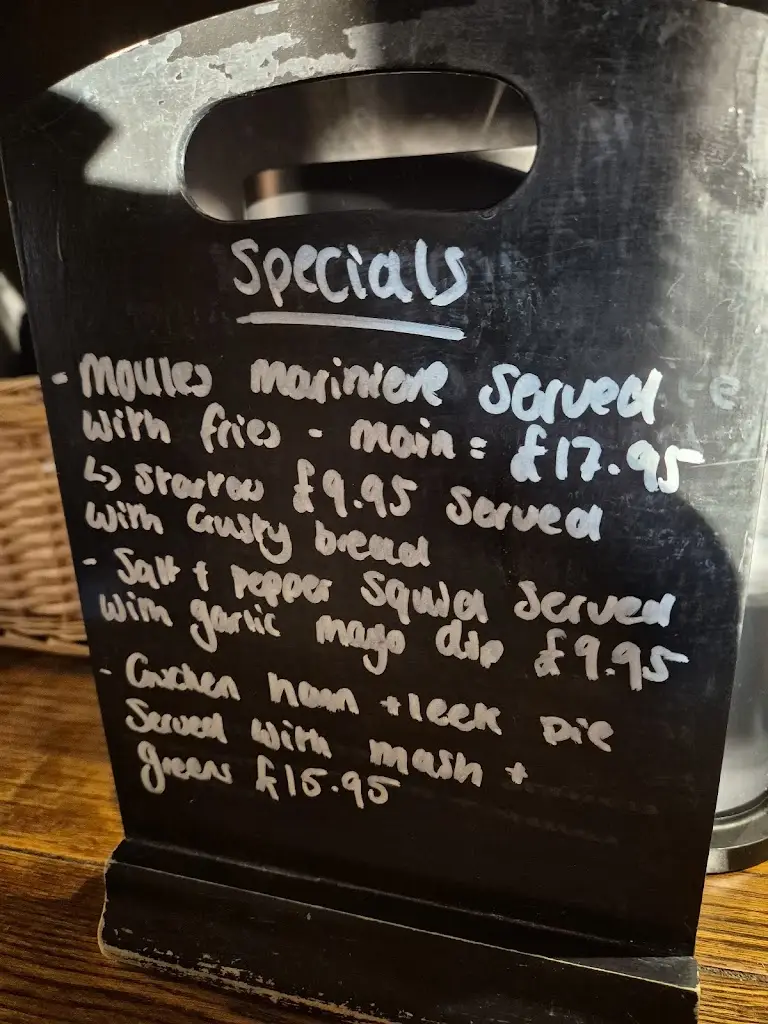 Specials
- Moules mariniere Served
with fries - main = £17.95
↳ starter £9.95 served
with Crusty bread
- Salt + pepper squid served
with garlic mayo dip £9.95
- Chicken ham + leek pie
Served with mash +
greens £15.95